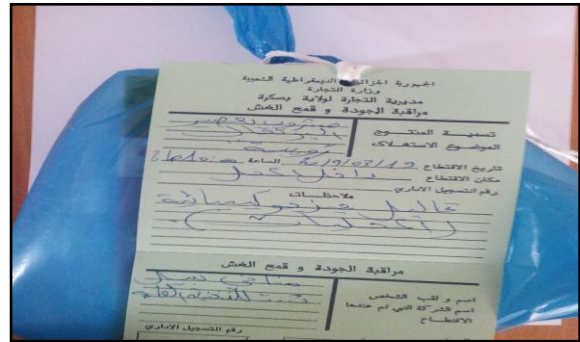 الجمهورية الجزائرية الديمقراطية الشعبية
وزارة التجارة
مديرية التجارة لولاية بسكرة
مراقبة الجودة و قمع الغش
تسمية المنتوج
الموضوع الاستهلاك
مشروب بعصير
البرتقال
تاريخ الاقتطاع 2019/03/19 الساعة
مكان الاقتطاع داخل محل
رقم التسجيل الاداري
ملاحظات
تحاليل فيزيوكيميائية
(المحليات).
مراقبة الجودة و قمع الغش
اسم و لقب الشخص
اسم الشركة التي تم عندها
الاقتطاع
رقم التسجيل الاداري